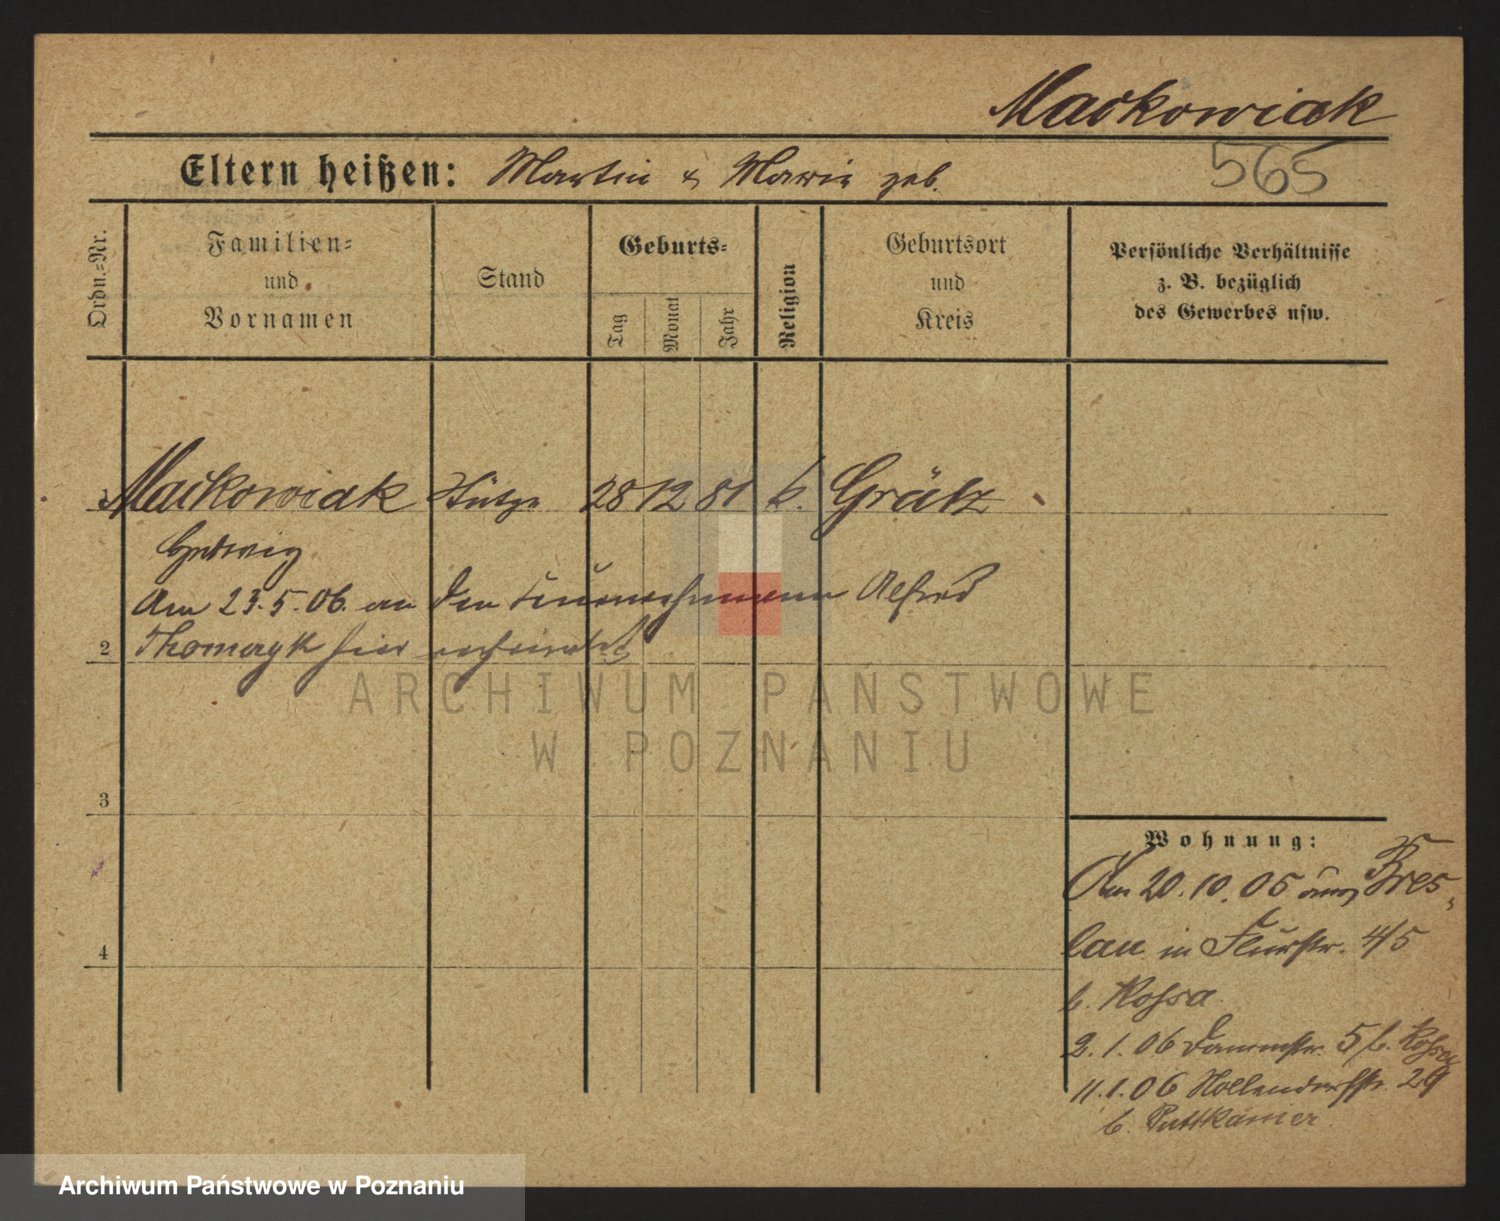 Maćkowiak
565
Eltern heißen: Martin & Marie geb.
Ordn.=Nr.
Familien=
und
Vornamen
Stand
Geburts=
Tag
Monat
Jahr
Religion
Geburtsort
und
Kreis
Persönliche Verhältnisse
z. B. bezüglich
des Gewerbes usw.
1 Maćkowiak Stütze 28 12 81 k. Grätz
Hedwig
Am 23.5.06. an den Feuerwehrmann Alfred
2 hier verheiratet
ARCHIWUM PAŃSTWOWE
W POZNANIU
3
4
Wohnung:
Am 20.10.05 aus Bres-
lau in Flurstr. 4/5
b. Kossa
2.1.06 Dammstr. 5 b. Kossa
11.1.06 Hollendorfstr. 29
b. Puttkamer
Archiwum Państwowe w Poznaniu